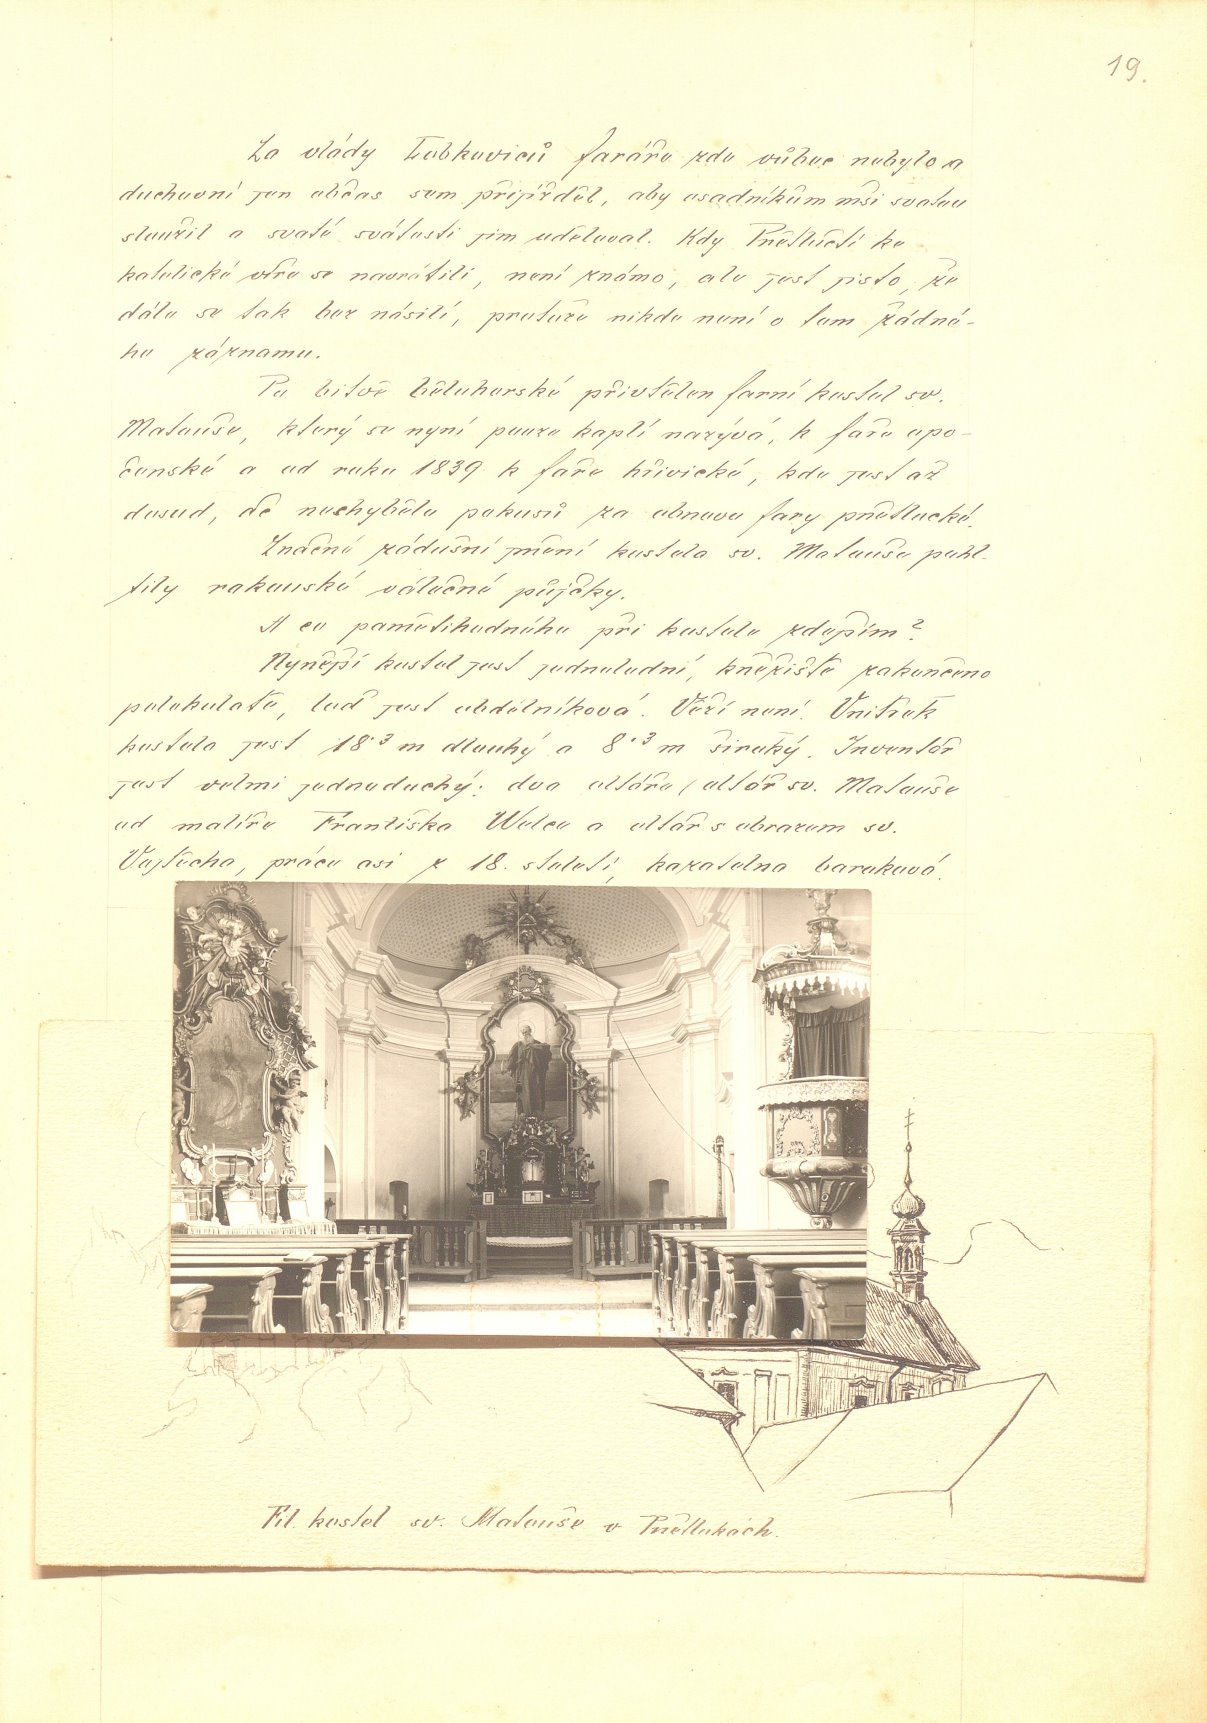 19.
Za vlády Lobkoviců faráře zde vůbec nebylo a
duchovní jen občas sem přijížděl, aby osadníkům mši svatou
sloužil a svaté svátosti jim uděloval. Kdy Pnětlučtí ke
katolické víře se navrátili, není známo, ale jest jisto, že
dálo se tak bez násilí, protože nikde není o tom žádné-
ho záznamu.
Po bitvě bělohorské přivtělen farní kostel sv.
Matouše, který se nyní pouze kaplí nazývá, k faře opo-
čenské a od roku 1839 k faře hřivické, kde jest až
dosud, ač nechybělo pokusů za obnovu fary pnětlucké.
Značné zádušní jmění kostela sv. Matouše pohl-
tily rakouské válečné půjčky.
A co pamětihodného při kostele zdejším?
Nynější kostel jest jednolodní, kněžiště zakončeno
polokulatě, loď jest obdélníková. Věží není. Vnitřek
kostela jest 18·3 m dlouhý a 8·3 m široký. Inventář
jest velmi jednoduchý: dva oltáře (oltář sv. Matouše
od malíře Františka Wolea a oltář s obrazem sv.
Vojtěcha, práce asi z 18. století, kazatelna baroková.
Fil. kostel sv. Matouše v Pnětlukách.